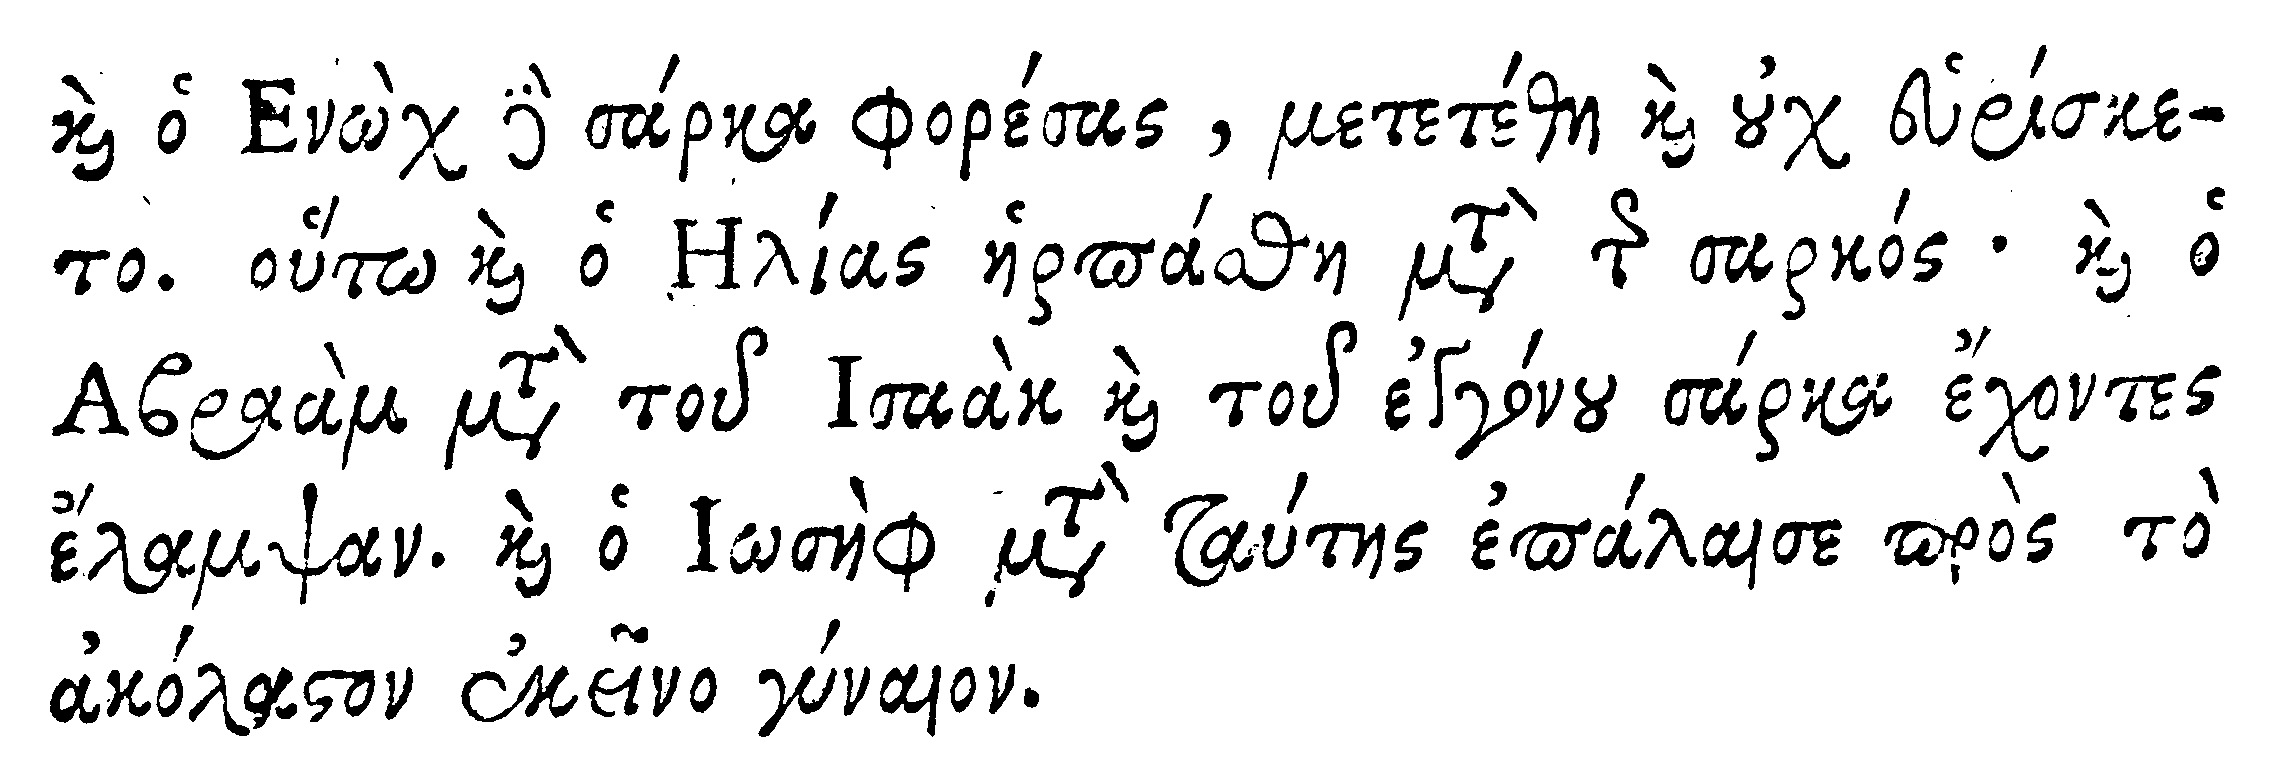 ϗ̀ ὁ Ενὼχ ϳ̈̀ σάρκα φορέσας, μετετέθη ϗ̀ ȣ̓χ εὑρίσκε-
το. οὕτω ϗ̀ ὁ Ηλίας ἡρπάσθη μτ̀ τ͂ σαρκός· ϗ̀ ὁ
Αβραὰμ μτ̀ τοῦ Ισαὰκ ϗ̀ τοῦ ἐγγόνȣ σάρκα ἔχοντες
ἔλαμψαν. ϗ̀ ὁ Ιωσὴφ μτ̀ ταύτης ἐπάλαισε πρὸς τὸ
ἀκόλαϛον ἐκεῖνο γύναιον.